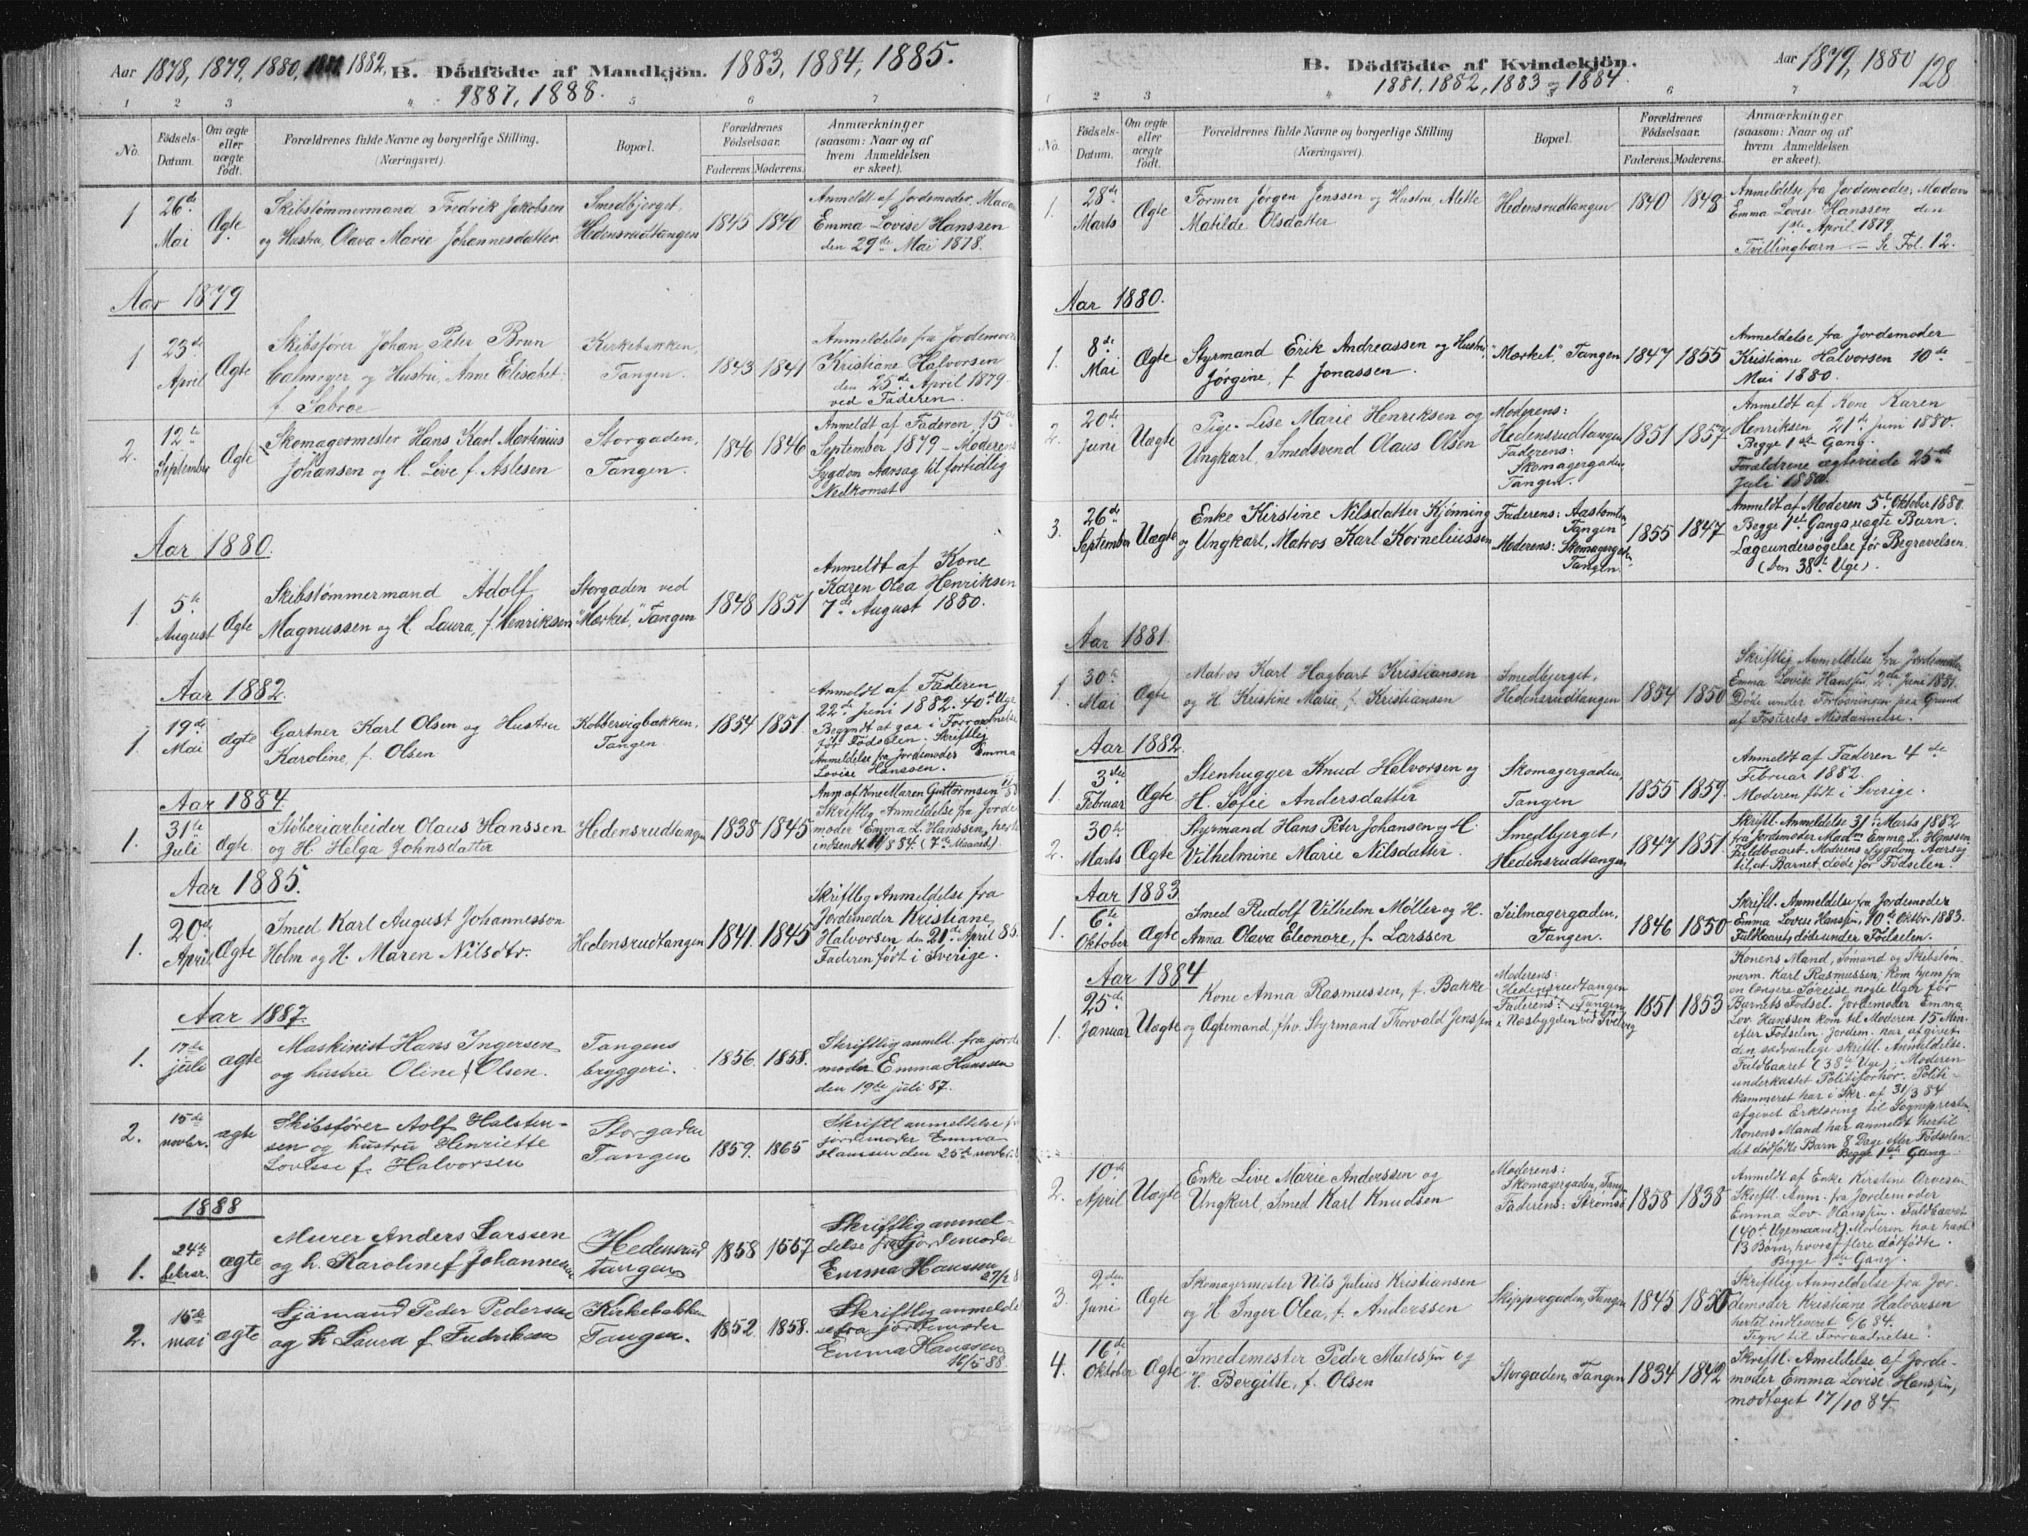 Aar 1878, 1879, 1880, 1882, B. Dödfödte af Mandkjön. 1883, 1884, 1885.
1887, 1888.
1 2 3 4 5 6 7
No. Födsels-Datum. Om ægte eller uægte födt. Forældrenes fulde Navne og borgerlige Stilling. (Næringsvei). Bopæl. Forældrenes Födselsaar. Faderens. Moderens. Anmærkninger (saasom: Naar og af hvem Anmeldelsen er skeet).
1 26de Mai Ægte Skibstømmermand Fredrik Jakobsen
og Hustru Olava Marie Johannesdatter
Smedbjerget, Hedensrudtangen 1845 1840
Anmeldt af Jordemoder, Madam
Emma Lovise Hanssen
den 29de Mai 1878.
Aar 1879
1 23de April Ægte Skibsfører Johan Peter Brun
Calmeyer og Hustru, Anne Elisabet
f. Sabroe
Kirkebakken, Tangen. 1843 1841
Anmeldelse fra Jordemoder
Kristiane Halvorsen
den 25de April 1879
ved Faderen.
2. 12te September Ægte Skomagermester Hans Karl Martinius
Johansen og H. Live f. Aslesen
Storgaden, Tangen. 1846 1846
Anmeldt af Faderen 15de
September 1879 – Moderens
Sygdom Aarsag til fortidlig
Nedkomst
Aar 1880.
1 5te August Ægte Skibstømmermand Adolf
Magnussen og H. Laura, f. Henriksen
Storgaden ved "Mærket," Tangen 1848 1851
Anmeldt af Kone
Karen Olea Henriksen
7de August 1880.
Aar 1882.
1. 19de Mai ægte Gartner Karl Olsen og Hustru
Karoline, f. Olsen
Kobbervigbakken, Tangen 1854 1851
Anmeldt af Faderen
22de Juni 1882. 40de Uge
Begyndt at gaa i Forraadnelse
før Fødselen. Skriftlig
Anmeldelse fra Jordemoder Emma
Lovise Hanssen.
Aar 1884.
1. 31te Juli Ægte Støberiarbeider Olaus Hanssen
og H. Helga Johnsdatter
Hedensrudtangen 1838 1845
Anm. af Kone Maren Guttormsen
Skriftlig Anmeldelse fra Jorde
moder Emma L. Hanssen,
indsendt 1/8 84. (7de Maaned.)
Aar 1885.
1. 20de April Ægte Smed Karl August Johannesson
Holm og H. Maren Nilsdtr.
Hedensrudtangen 1841. 1845
Skriftlig Anmeldelse fra
Jordemoder Kristiane
Halvorsen den 21de April 85.
Faderen født i Sverige.
Aar 1887.
1. 17de juli ægte Maskinist Hans Ingersen
og hustru Oline f. Olsen.
Tangens bryggeri. 1856. 1858.
Skriftlig anmeldt. fra jorde
moder Emma Hanssen
den 19de juli 87.
2. 15de novbr. ægte Skibsfører Adolf Halsten-
sen og hustru Henriette
Lovisse f. Halvorsen
Storgaden Tangen 1859. 1865
Skriftl anmeldelse
jordemoder Emma
Hanssen den 25de novbr.
1888
1. 24de febrar. ægte Murer Anders Larssen
og h. Karoline f Johannesen
Hedensrud tangen 1858 1857
Skriftlig anmel-
delse fra jordemoder
Emma Hanssen
27/2
2. 15de mai ægte Sjömand Peder Pedersen
og h. Laura f. Fredriksen
Kirkebakken Tangen. 1852. 1858.
Skriftlig anmelde
se fra jordemoder
Emma Hanssen
16/5 88.
B. Dödfödte af Kvindekjön. Aar 1879, 1880 128
1881, 1882, 1883 og 1884.
1 2 3 4 5 6 7
No. Födsels-Datum. Om ægte eller uægte födt. Forældrenes fulde Navne og borgerlige Stilling (Næringsvei). Bopæl. Forældrenes Födselsaar. Faderens. Moderens. Anmærkninger (saasom: Naar og af hvem Anmeldelsen er skeet).
1. 28de Marts Ægte Former Jørgen Jenssen og Hustru Alette
Matilde Olsdatter
Hedensrudtangen 1840 1848
Anmeldelse fra Jordemoder, Madam
Emma Lovise Hanssen den
1ste April 1879
Tvillingbarn – Se Fol. 12.
Aar 1880.
1. 8de Mai Ægte Styrmand Erik Andreassen og Hustru
Jørgine, f. Jonassen.
"Mærket" Tangen 1847 1855
Anmeldelse fra Jordemoder
Kristiane Halvorsen 10de
Mai 1880.
2. 20de Juni Uægte Pige Lise Marie Henriksen og
Ungkarl, Smedsvend Olaus Olsen
Moderens: Hedensrudtangen
Faderens: Skomagergaden Tangen. 1851 1857
Anmeldt af Kone Karen
Henriksen 21de Juni 1880.
Begge 1ste Gang.
Forældrene ægteviede 25de
Juli 1880.
3. 26de September Uægte Enke Kirstine Nilsdatter Kjønning
og Ungkarl, Matros Karl Korneliussen
Faderens: Aastomten Tangen
Moderens: Skomagergaden Tangen 1855 1847
Anmeldt af Moderen 5te Oktober 1880.
Begge 1ste Gangs uægte Barn.
Lægeundersøgelse før Begravelsen.
(Den 38te Uge).
Aar 1881.
1 30te Mai Ægte Matros Karl Hagbart Kristiansen
og H. Kristine Marie, f. Kristiansen
Smedbjerget, Hedensrudtangen 1854 1850
Skriftlig Anmeldelse fra Jordemoder
Emma Lovise Hanssen, 2de Juni 1881.
Døde under Forløsningen paa Grund
af Fosterets Misdannelse.
Aar 1882.
1. 3die Februar Ægte Stenhugger Knud Halvorsen og
H. Sofie Andersdatter
Skomagergaden, Tangen 1855 1859.
Anmeldt af Faderen 4de
Februar 1882.
Moderen født i Sverige.
2. 30te Marts Ægte Styrmand Hans Peter Johansen og H.
Vilhelmine Marie Nilsdatter.
Smedbjerget, Hedensrudtangen 1847 1851
Skriftl. Anmeldelse 31te Marts 1882
fra Jordemoder Madm Emma L. Hanssen
Fuldbaaret. Moderens Sygdom Aarsag
til, at Barnet døde før Fødselen.
Aar 1883
1. 6te Oktober Ægte Smed Rudolf Vilhelm Möller og H.
Anna Olava Eleonore, f. Larssen
Seilmagergaden, Tangen. 1846 1850
Skriftl. Anmeldelse fra Jordemoder
Emma Lovise Hanssen, 10de Oktbr. 1883.
Fuldbaaret, døde under Fødselen.
Aar 1884
1. 25de Januar Uægte Kone Anna Rasmussen, f. Bakke
og Ægtemand, fhv. Styrmand Thorvald Jenssen
Moderens: Hedensrudtangen
Faderens: Tangen,
i Næsbygden ved Svelvig 1851 1853
Konens Mand, Sømand og Skibstøm-
merm. Karl Rasmussen, kom hjem fra
en længere Søreise nogle Uger før
Barnets Fødsel. Jordemoder Emma
Lov. Hanssen kom til Moderen 15 Min.
efter Fødselen. Jordem. har afgivet
den sædvanlige skriftl. Anmeldelse.
Fuldbaaret (38te Uge). Moderen
underkastet Politiforhør. Politi-
kammeret har i Skr. af 31/3 84
afgivet Erklæring til Sognepresten
Konens Mand har anmeldt hertil
det dødfødte Barn 8 Dage efter Fødselen.
Begge 1ste Gang.
2. 10de April Uægte Enke Live Marie Anderssen og
Ungkarl, Smed Karl Knudsen
Moderens: Skomagergaden, Tangen
Faderens: Strømsø 1858 1838
Anmeldt af Enke Kirstine Orvesen
Skriftl. Anm. fra Jordemoder
Emma Lov. Hanssen. Fuldbaaret
(40de Uge). Moderen har havt
13 Børn, hvoraf flere dødfødte.
Begge 1ste Gang.
3. 2den Juni Ægte Skomagermester Nils Julius Kristiansen
og H. Inger Olea, f. Anderssen
Skippergaden, Tangen 1845 1850
Skriftlig Anmeldelse fra Jor-
demoder Kristiane Halvorsen
hertil indleveret 6/6 84.
Tegn til Forraadnelse.
4. 16de Oktober Ægte Smedemester Peder Matessen og
H. Bergitte, f. Olsen
Storgaden, Tangen 1834 1842
Skriftl. Anmeldelse af Jorde-
moder Emma Lovise Hanssen,
modtaget 17/10 84.